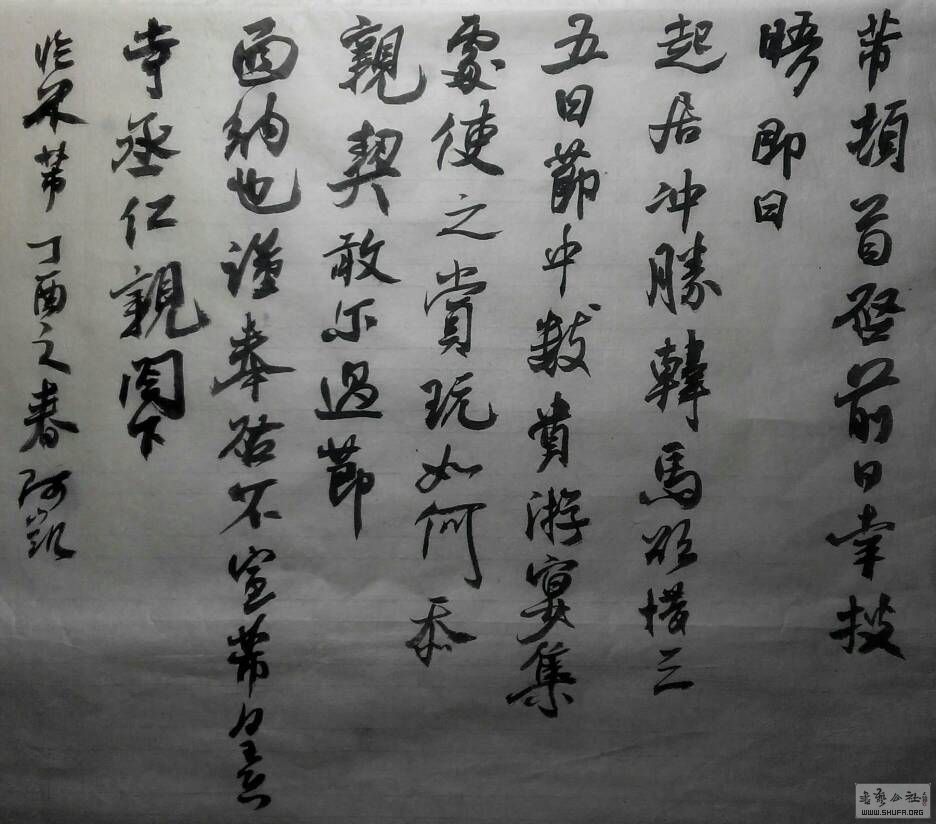 芾頓首啓前日幸披
晤即日
起居冲勝韓馬欲借三
五日節中數貴游宴集
處使之賞玩如何忝
親契敢尓過節
面納也謹奉啓不宣芾頓首
寺丞仁親閣下
临米芾丁酉之春阿凱
書藝公社
WWW.SHUFA.ORG